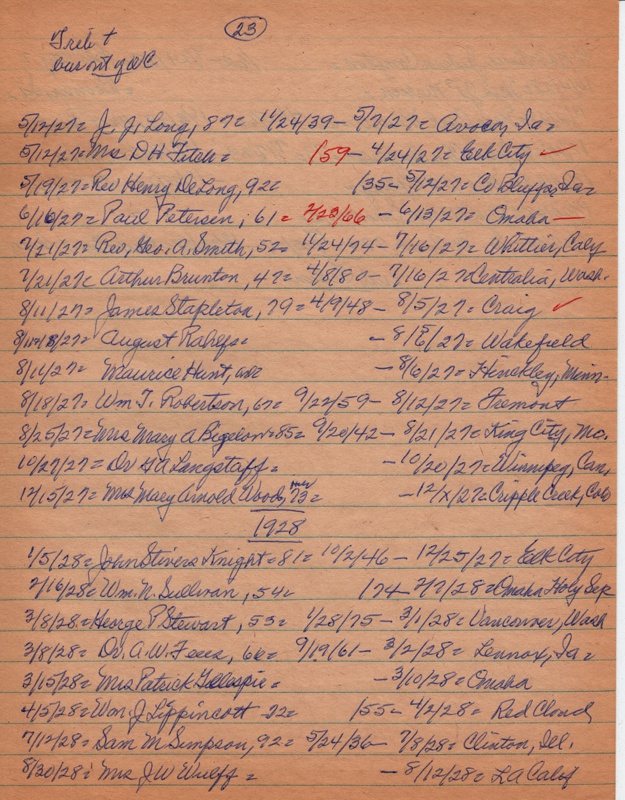 23
Trib +
5/12/27= J. J. Long, 87= 11/24/39- 5/7/27= Avoca, Ia=
5/12/27= Mrs D H Fitch= /59- 4/24/27= Elk City ✓
5/19/27= Rev Henry DeLong, 92= /35- 5/12/27= Co Bluffs, Ia=
6/16/27= Paul Petersen, 61= 2/23/66 - 6/13/27= Omaha —
7/21/27= Rev. Geo. A. Smith, 52= 11/24/74- 7/16/27= Whittier, Calif
7/21/27= Arthur Brunton, 47= 4/8/80- 7/16/27= Centralia, Wash.
8/11/27= James Stapleton, 79= 4/9/48- 8/5/27= Craig ✓
August - 8/8/27= Wakefield
8/11/27= Maurice Hunt, - 8/6/27= Hinckley, Minn-
8/18/27= Wm T. Robertson, 67= 9/22/59- 8/12/27= Fremont
8/25/27= Mrs Mary A Bigelow=85= 9/20/42- 8/21/27= King City, Mo.
10/27/27= Dr GA Langstaff= -10/20/27= Winnipeg, Can,
12/15/27= Mrs Mary Arnold Woods, 73= -12/x/27= Cripple Creek, Colo
1928
1/5/28= John Stivers Knight=81= 10/2/46- 12/25/27= Elk City
2/16/28= Wm. N. Sullivan, 54= /74- 2/7/28= Omaha Holy Sep
3/8/28= George P Stewart, 53= 1/28/75- 3/1/28= Vancouver, Wash
3/8/28= Dr. A. W. 66= 9/19/61- 3/2/28= Lennox, Ia=
3/15/28= Mrs Patrick Gillespie= -3/10/28= Omaha
4/5/28= Wm. J. Lippincott 72= /55- 4/2/28= Red Cloud
7/12/28= Sam M Simpson, 92= 5/24/36- 7/8/28= Clinton, Ill.
8/30/28= Mrs J W Wulff= - 8/12/28= LA Calif